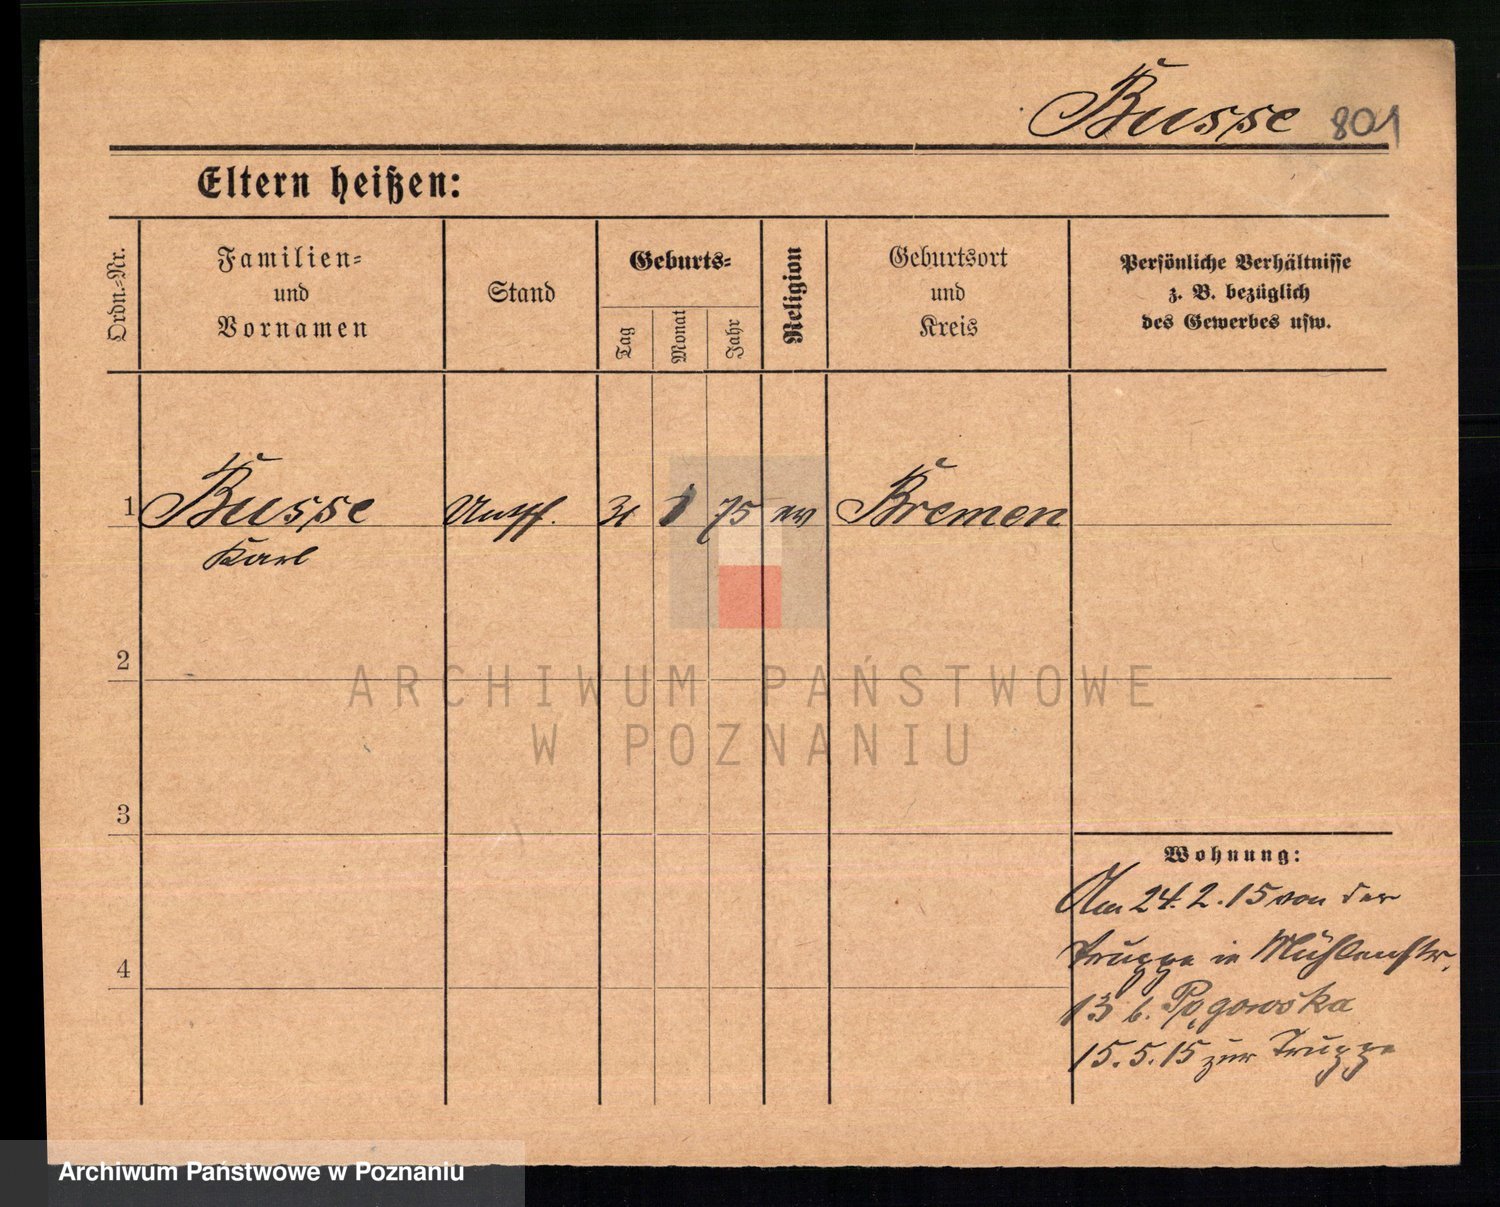 Busse 801
Eltern heißen:
Ordn.-Nr.
Familien-
und
Vornamen
Stand
Geburts-
Tag
Monat
Jahr
Religion
Geburtsort
und
Kreis
Persönliche Verhältnisse
z. B. bezüglich
des Gewerbes usw.
1 Busse 1 75 ev Bremen
Karl
2
ARCHIWUM PAŃSTWOWE
W POZNANIU
3
Wohnung:
Am 24.2.15 von der
Truppe in Mühlenstr.
13 b.
4
15.5.15 zur Truppe
Archiwum Państwowe w Poznaniu